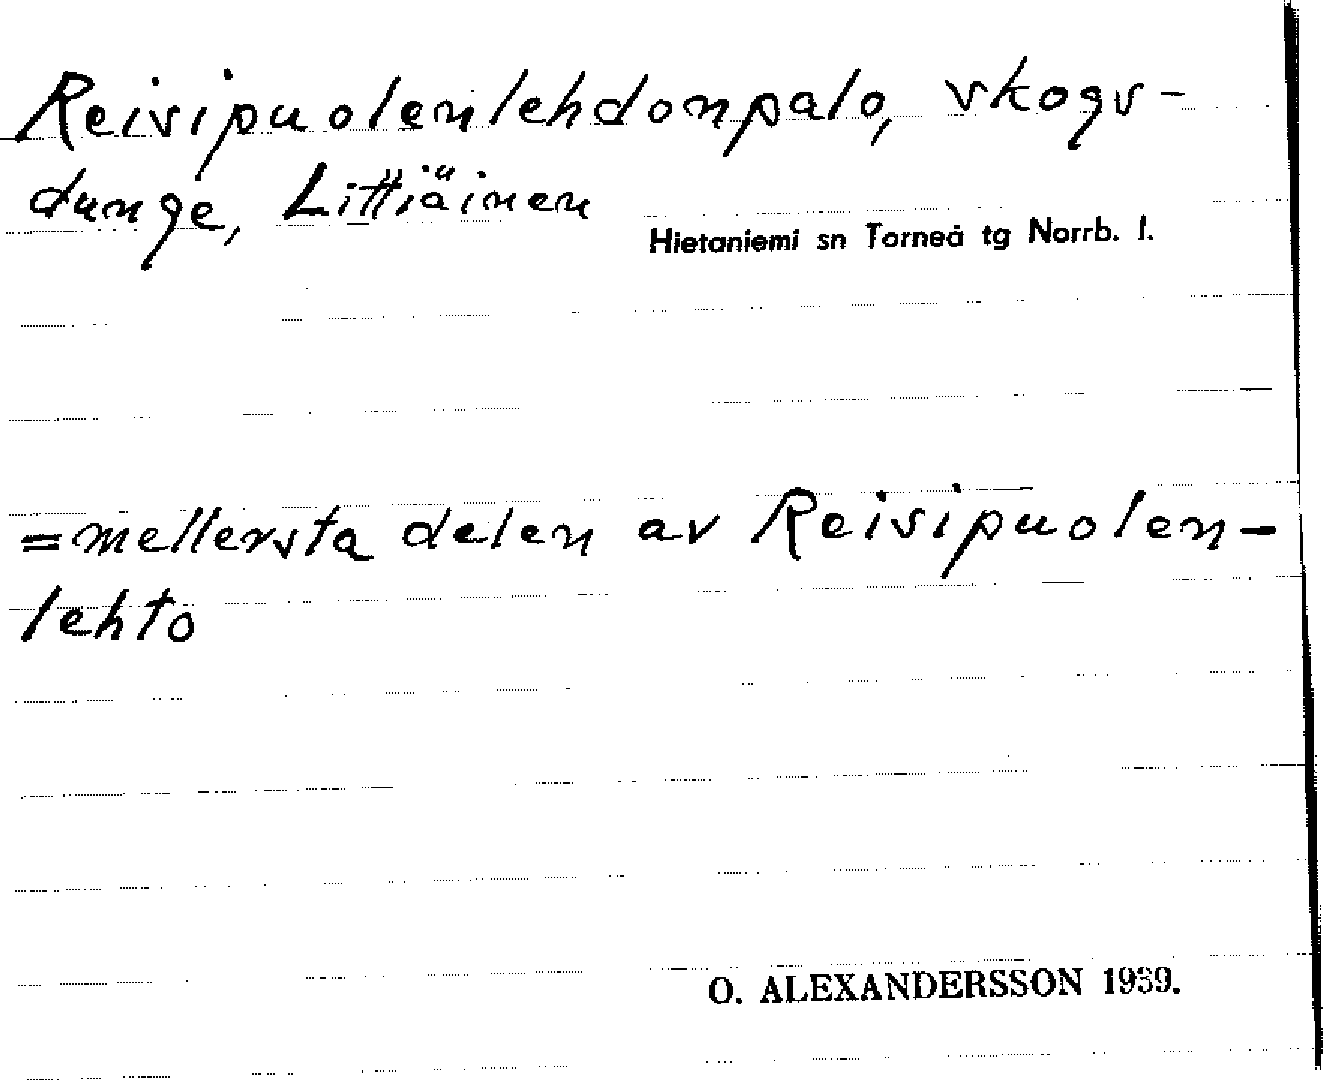 Reisipuolenlehdonpalo, skogs-
dunge, Littiäinen
Hietaniemi sn Torneå tg Norrb. l.
=mellersta delen av Reisipuolen-
lehto
O. ALEXANDERSSON 1939.